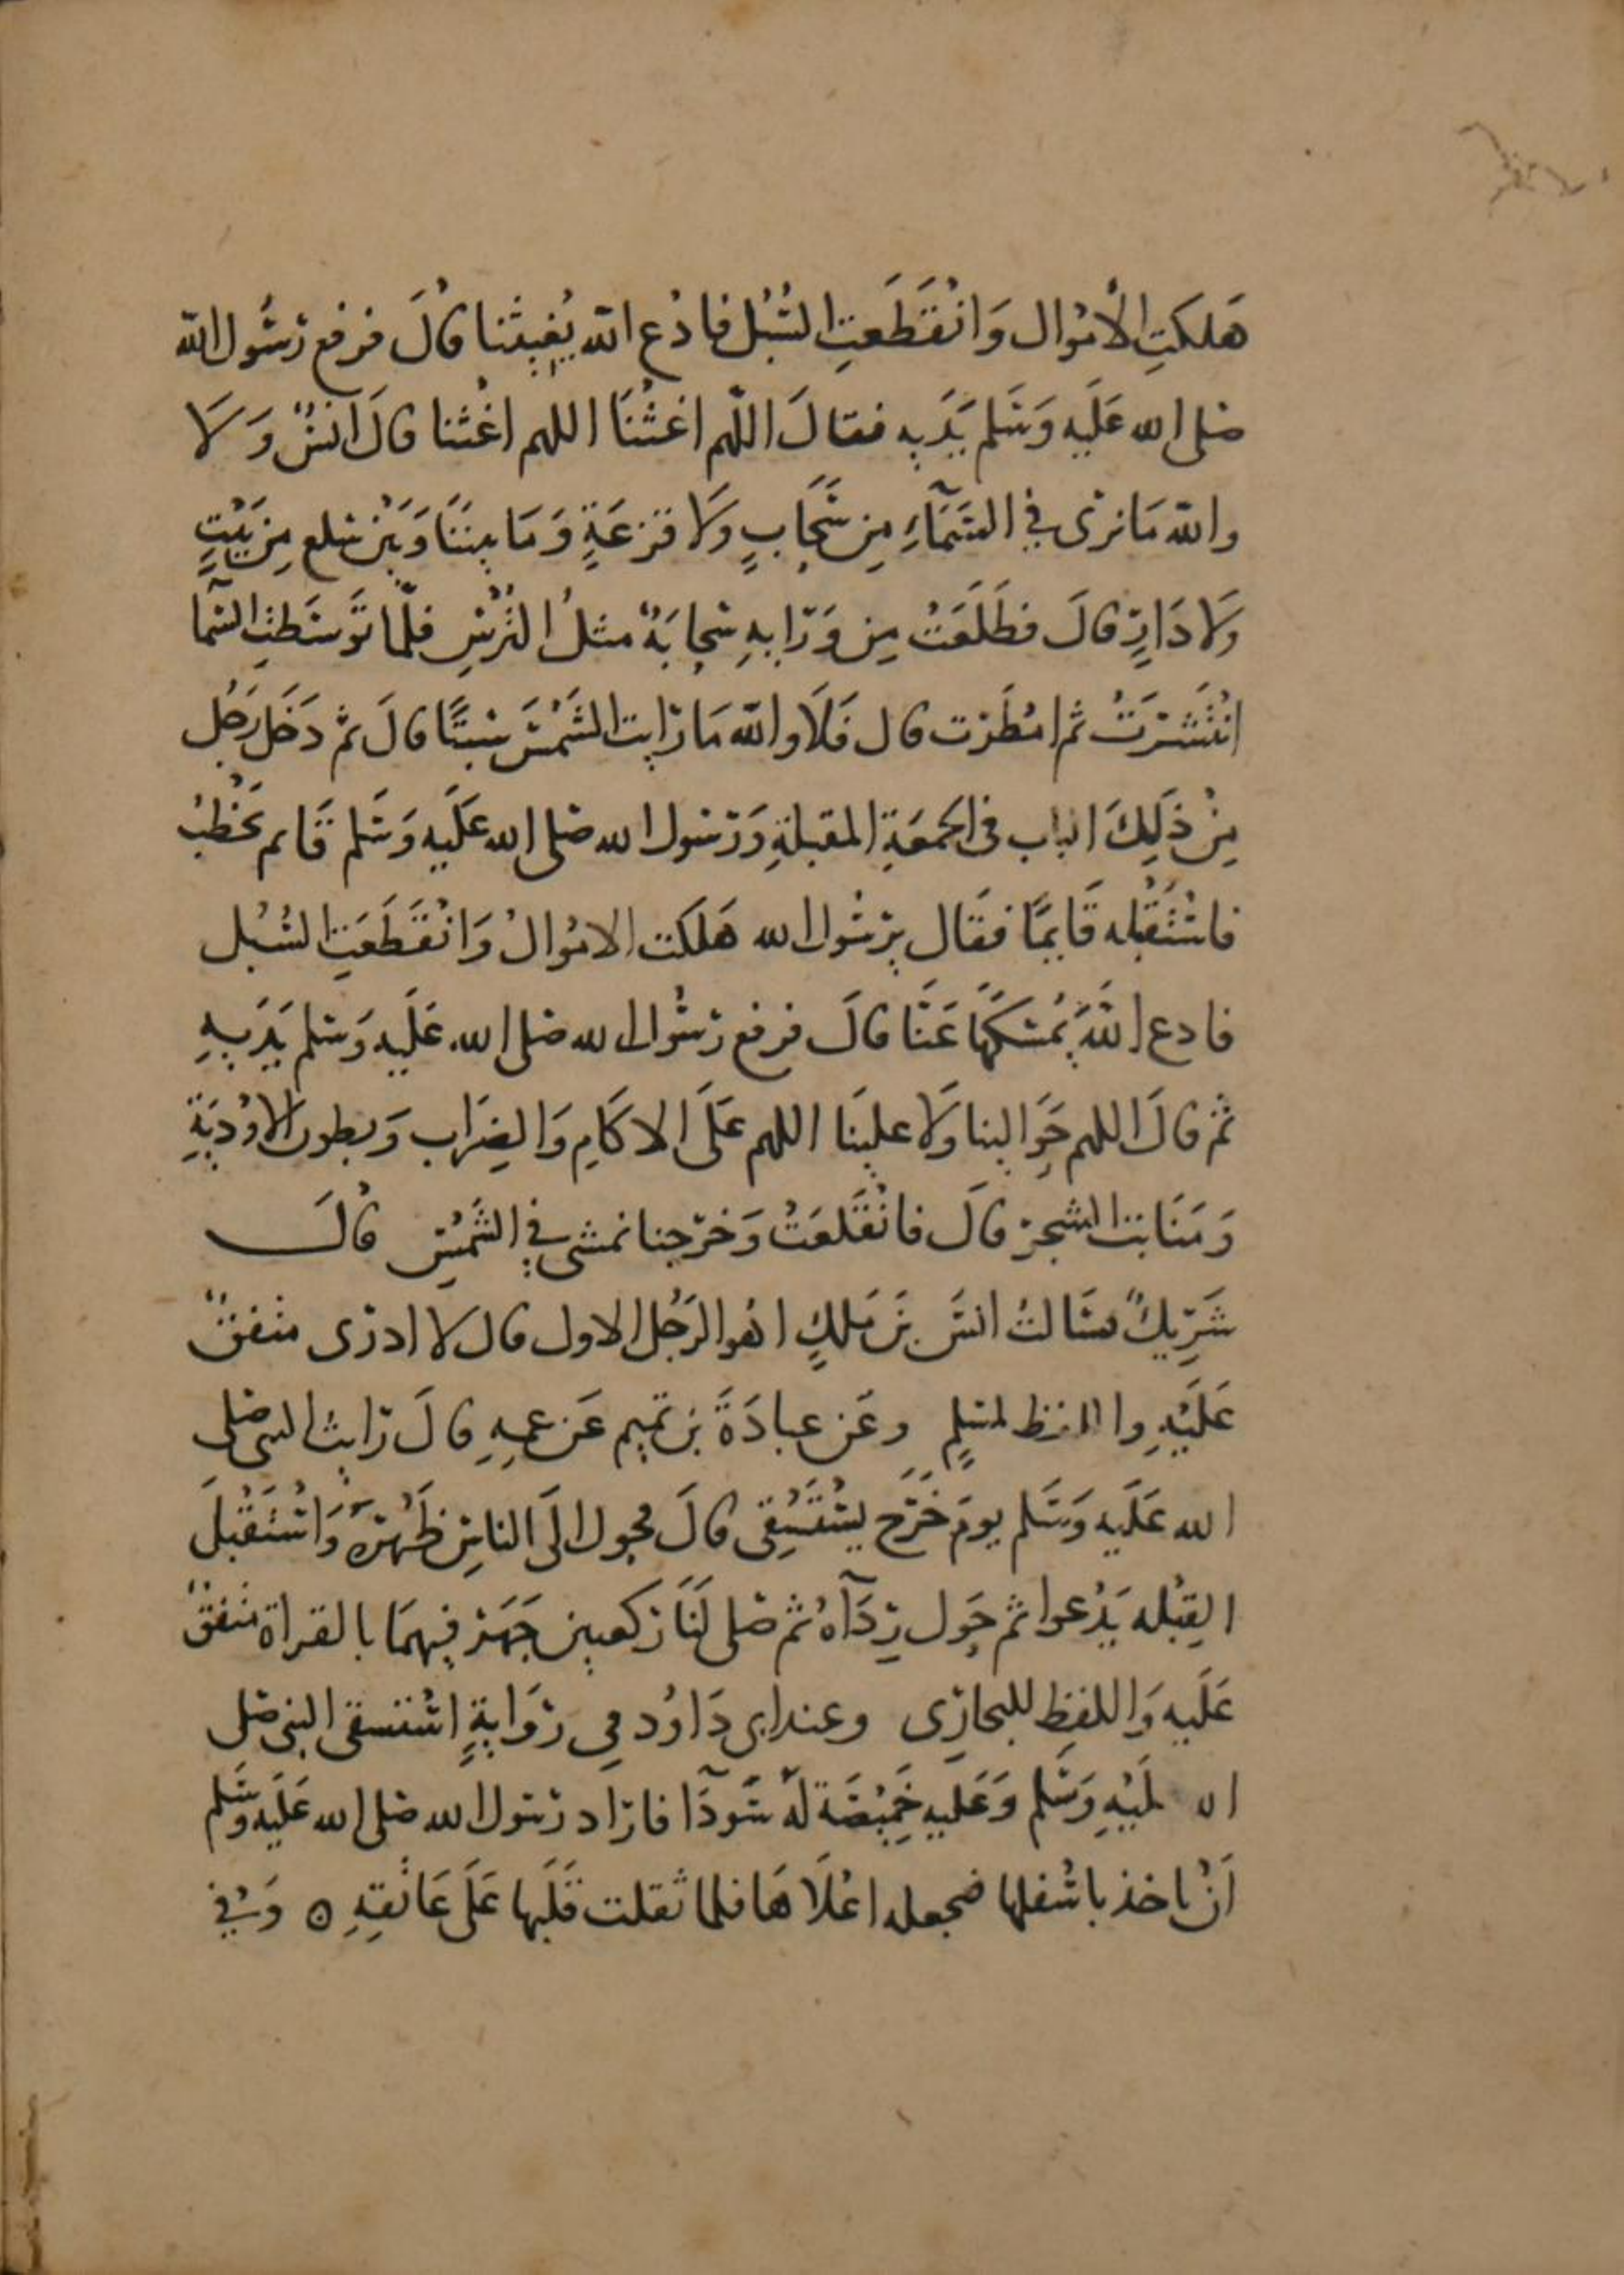 هَلكَتِ الأمْوال وَانْقَطَعَتِ السُّبُل فادْع الله يُغيثنا قالَ فرفع رَسُول الله
صلى الله عَلَيه وَسَلم يَدَيه فقالَ اللهم اغثنَا اللهم اغثنا قالَ انسٌ وَلَا
والله مَا نرى في السَّمَآءِ مِن سَحَابٍ وَلَا قزعَةٍ وَمَا بيننَا وَبَيْن سَلع مِن بَيْتٍ
وَلا دَارٍ قالَ فطَلَعَتْ مِن وَرَايهِ سَحابَةٌ مثلُ التُرْسِ فلمّا تَوسَطَتِ السّمآ
انْتَشَرَتْ ثم امْطَرَت قال فَلَا والله مَا رَايت الشَمْسَ سَبْتًا قالَ ثم دَخَل رَجُل
مِنْ ذَلِكَ الباب فى الجمعَةِ المقبلةِ وَرَسُول الله صلى الله عَلَيه وَسَلم قَايم يَخْطبُ
فاسْتَقْبَله قَايمًا فقَال يرَسُول الله هَلَكَت الامْوالُ وَانْقَطَعَتِ السُبُل
فادع اللهَ يُمْسكهَا عَنَّا قالَ فرفع رَسُول الله صلى الله عَلَيه وَسَلم يَدَيهِ
ثم قالَ اللهم حَوَالينا وَلا علينَا اللهم عَلَى الاكَامِ وَالضِرَاب وَبطون الاوْدِيَةِ
وَمَنَابت الشجَر قالَ فانْقَلعَتْ وَخرَجنا نمشى في الشَّمْسِ قالَ
شَرِيكٌ فسَالتُ انسَ بنَ مَلكٍ اهو الرَجُل الاول قال لا ادرى متفقٌ
عَلَيْهِ واللفظ لمسلمٍ وعَن عبادَةَ بن تَميم عَن عمهِ قالَ رَايتُ النبى صلى
الله عَلَيه وَسَلم يومَ خَرَج يسْتَسْقِى قالَ فحول الَى الناسِ ظَهْرَهُ وَاسْتَقْبلَ
القِبْله يَدْعوا ثم حَول رِدَآهُ ثم صَلى لَنَا ركعتين جَهَرَ فيهمَا بالقراة متفقٌ
عَلَيه وَاللفظ للبخارى وعند ابى دَاوُد فى روَايةٍ اسْتسقى النبى صَلى
الله عَلَيْهِ وَسَلم وَعَليه خَمِيْصَة لَه سَودَا فارَاد رَسُول الله صلى الله عَلَيه وَسَلم
اَنْ ياخذ باسْفلها فيجعله اعْلَاهَا فلما ثقلت قَلَبها عَلَى عَاتقِهِ ه وَفي